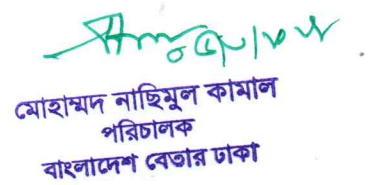 মোহাম্মদ নাছিমুল কামাল
পরিচালক
বাংলাদেশ বেতার ঢাকা